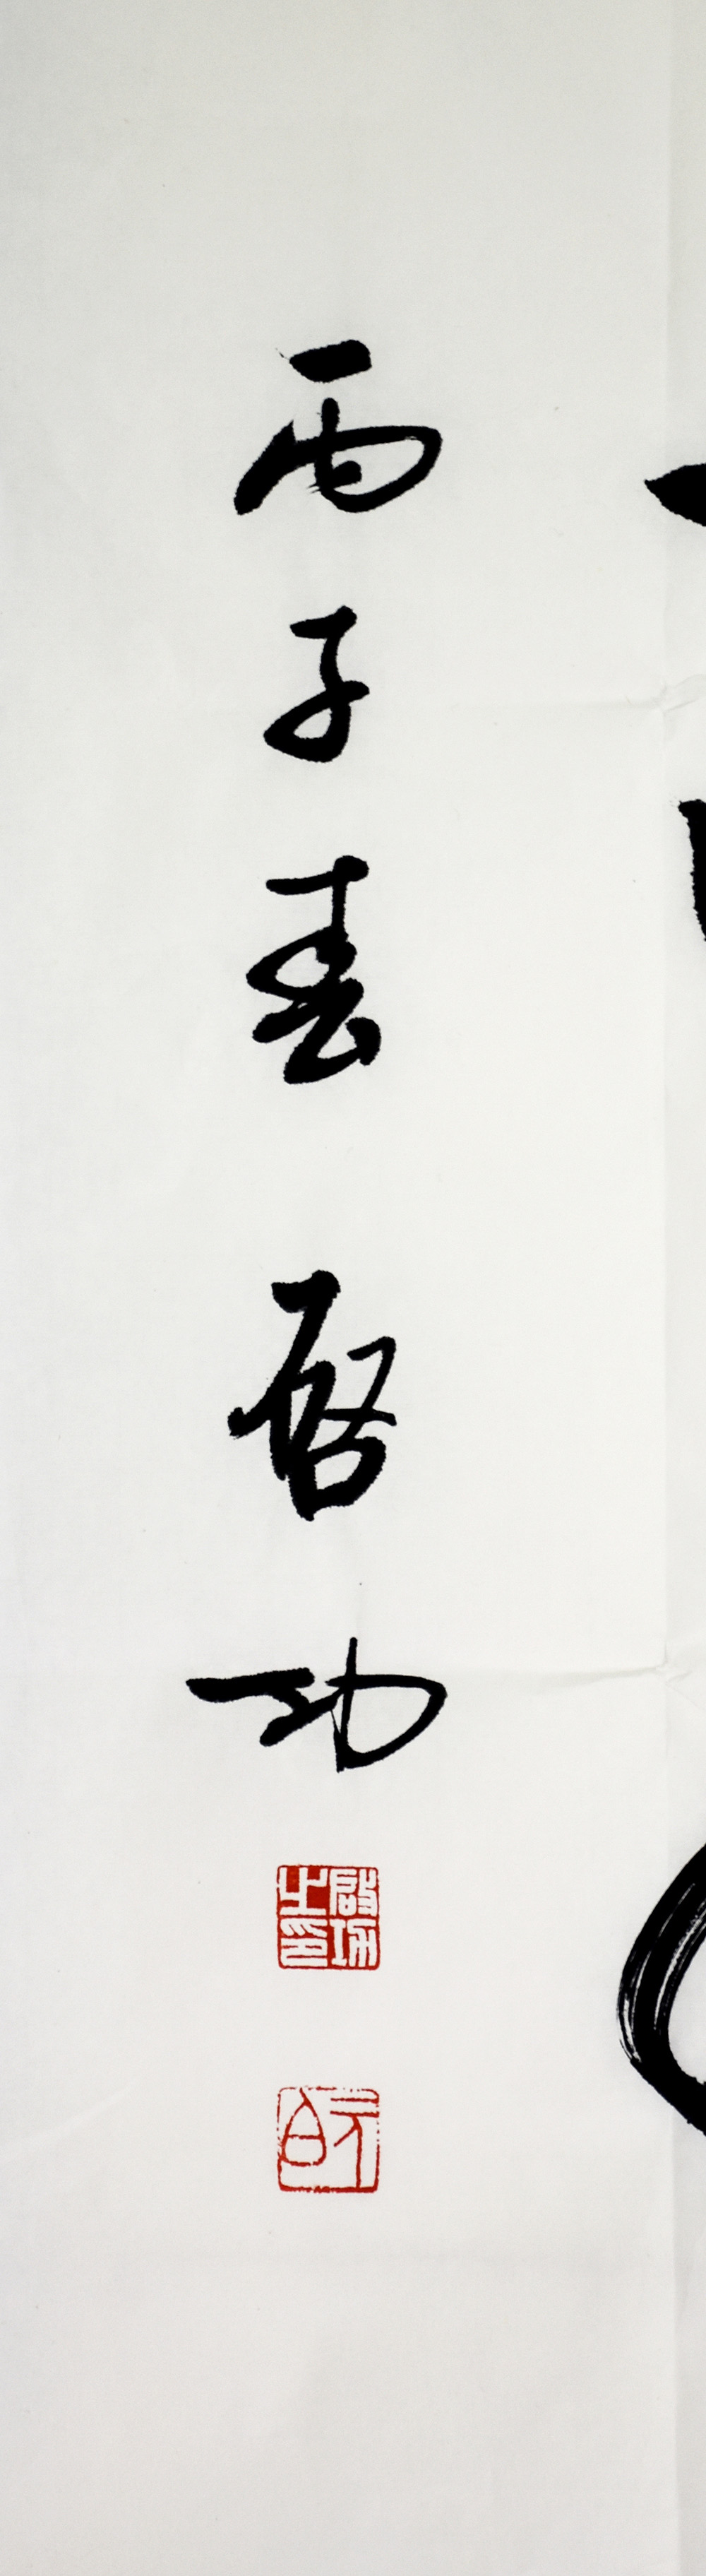 丙子春 启功
启功之印
元白